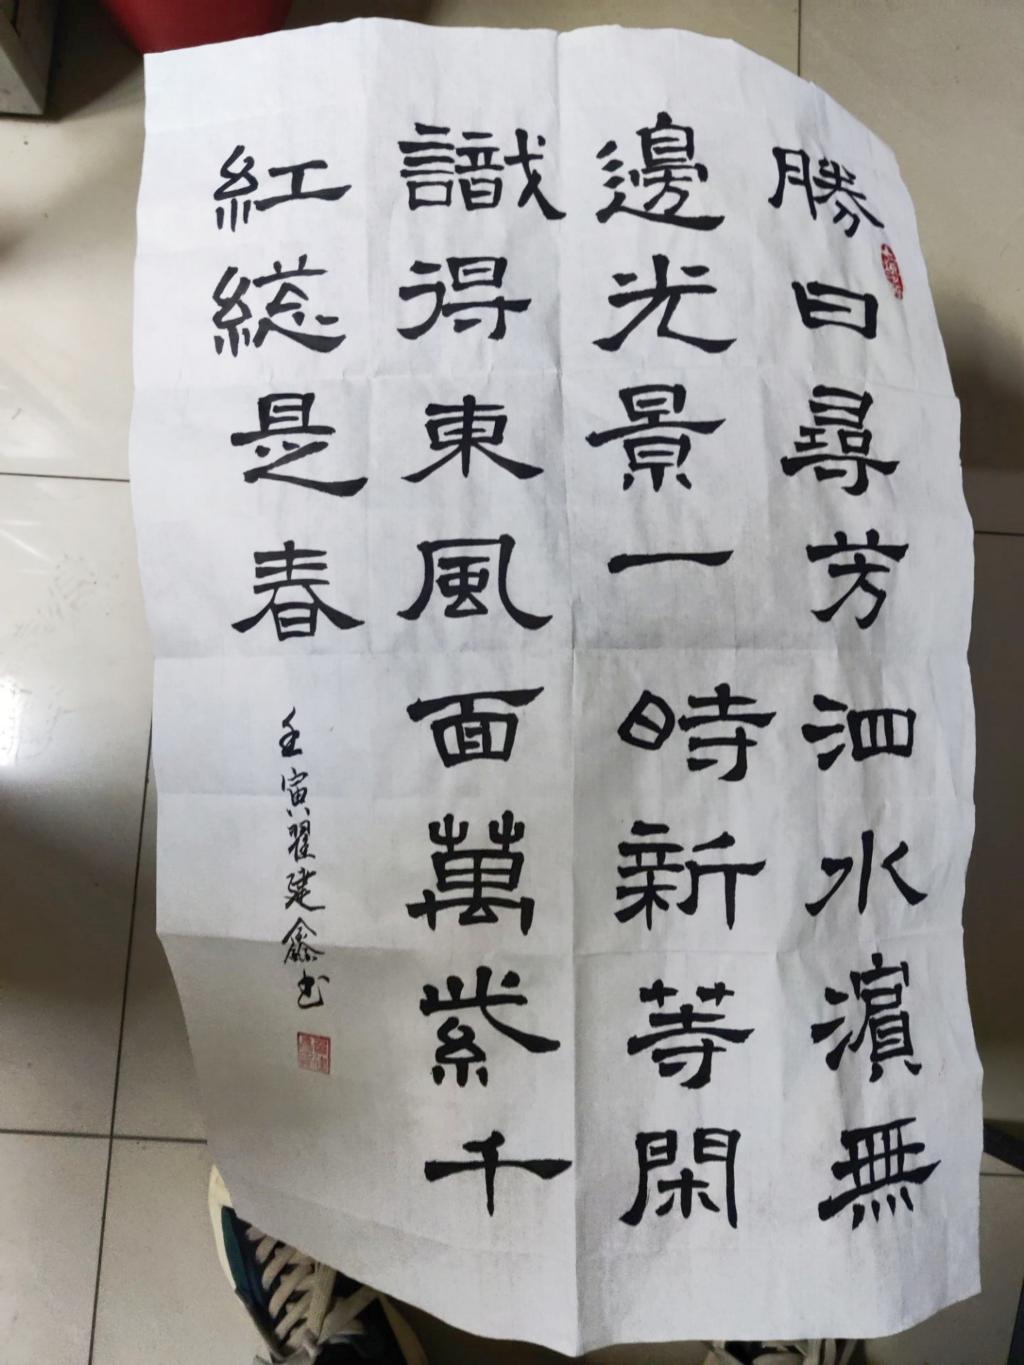 勝日尋芳泗水濵無
邊光景一時新等閑
識得東風面萬紫千
紅総是春
壬寅翟建鑫书